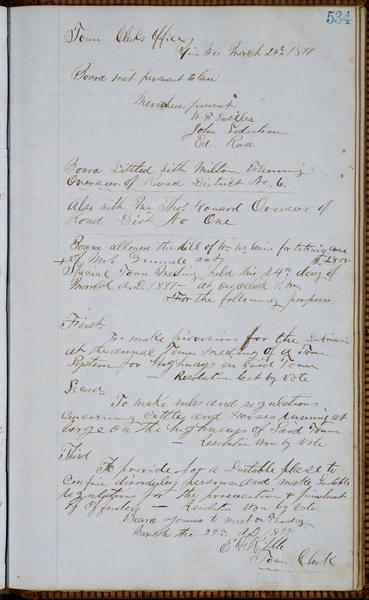 534
Town Clerks Office
Wis March 24th 1877
Board met pursuant to law
Members present
John
Ed. Rose
Board Settled with Milton Flemming
Overseer of Road District No. 6.
Also with Mr Thos. Howard Overseer of
Road Dist No One
Board allowed the bill of Wm for taking care
of Mrs Grinnell amt
Special Town Meeting held this 24th day of
March A.D. 1877 At one o'clock P.M.
For the following purposes
First
To make provisions for the
at the annual Town Meeting of a Town
System for Highways in Said Town
— Resolution lost by Vote
Second
To make rules and regulations
concerning Cattle and Horses running at
large on the highways of Said Town
— Resolution Won by Vote
Third
To provide for a Suitable place to
confine disorderly persons and make Suitable
regulations for the prosecution & punishment
of Offenders — Resolution Won by Vote
Board adjourned to meet on Tuesday
March the 27th A.D. 1877
Town Clerk